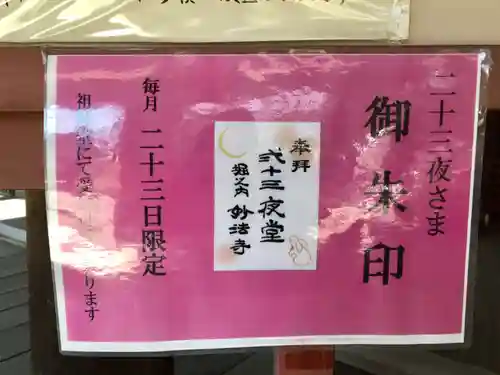 二十三夜さま
御朱印
奉拝
弐十三夜堂
堀之内 妙法寺
毎月 二十三日限定
祖師堂にて ります